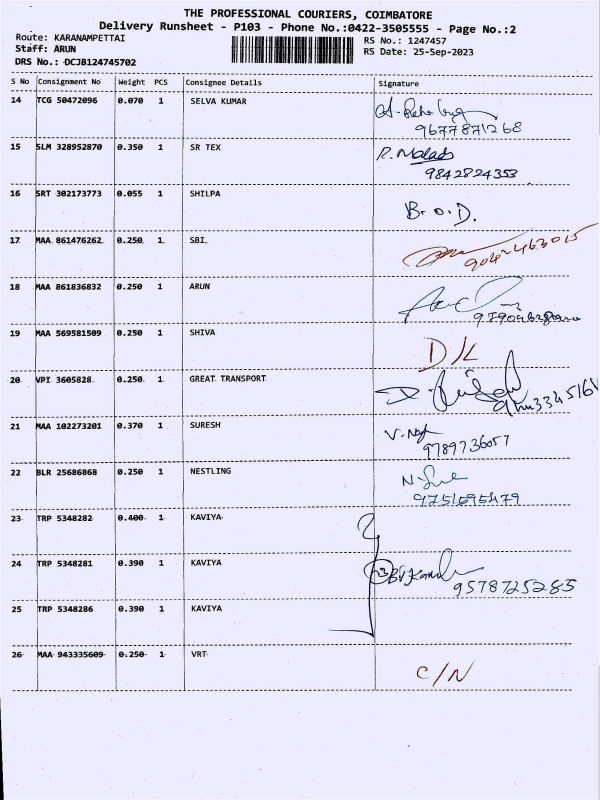 THE PROFESSIONAL COURIERS, COIMBATORE
Delivery Runsheet - P103 - Phone No.:0422-3505555 - Page No.:2
Route: KARANAMPETTAI RS No.: 1247457
Staff: ARUN RS Date: 25-Sep-2023
DRS No.: DCJB124745702
S No Consignment No Weight PCS Consignee Details Signature
14 TCG 50472096 0.070 1 SELVA KUMAR
9677871268
15 SLM 328952870 0.350 1 SR TEX R.
9842824353
16 SRT 302173773 0.055 1 SHILPA B.O.D.
17 MAA 861476262 0.250 1 SBI
9042463015
18 MAA 861836832 0.250 1 ARUN
19 MAA 569581509 0.250 1 SHIVA D/L
20 VPI 3605828 0.250 1 GREAT TRANSPORT
21 MAA 102273201 0.370 1 SURESH
9789736057
22 BLR 25686868 0.250 1 NESTLING
9751695479
23 TRP 5348282 0.400 1 KAVIYA
24 TRP 5348281 0.390 1 KAVIYA
9578725285
25 TRP 5348286 0.390 1 KAVIYA
26 MAA 943335609 0.250 1 VRT C/N